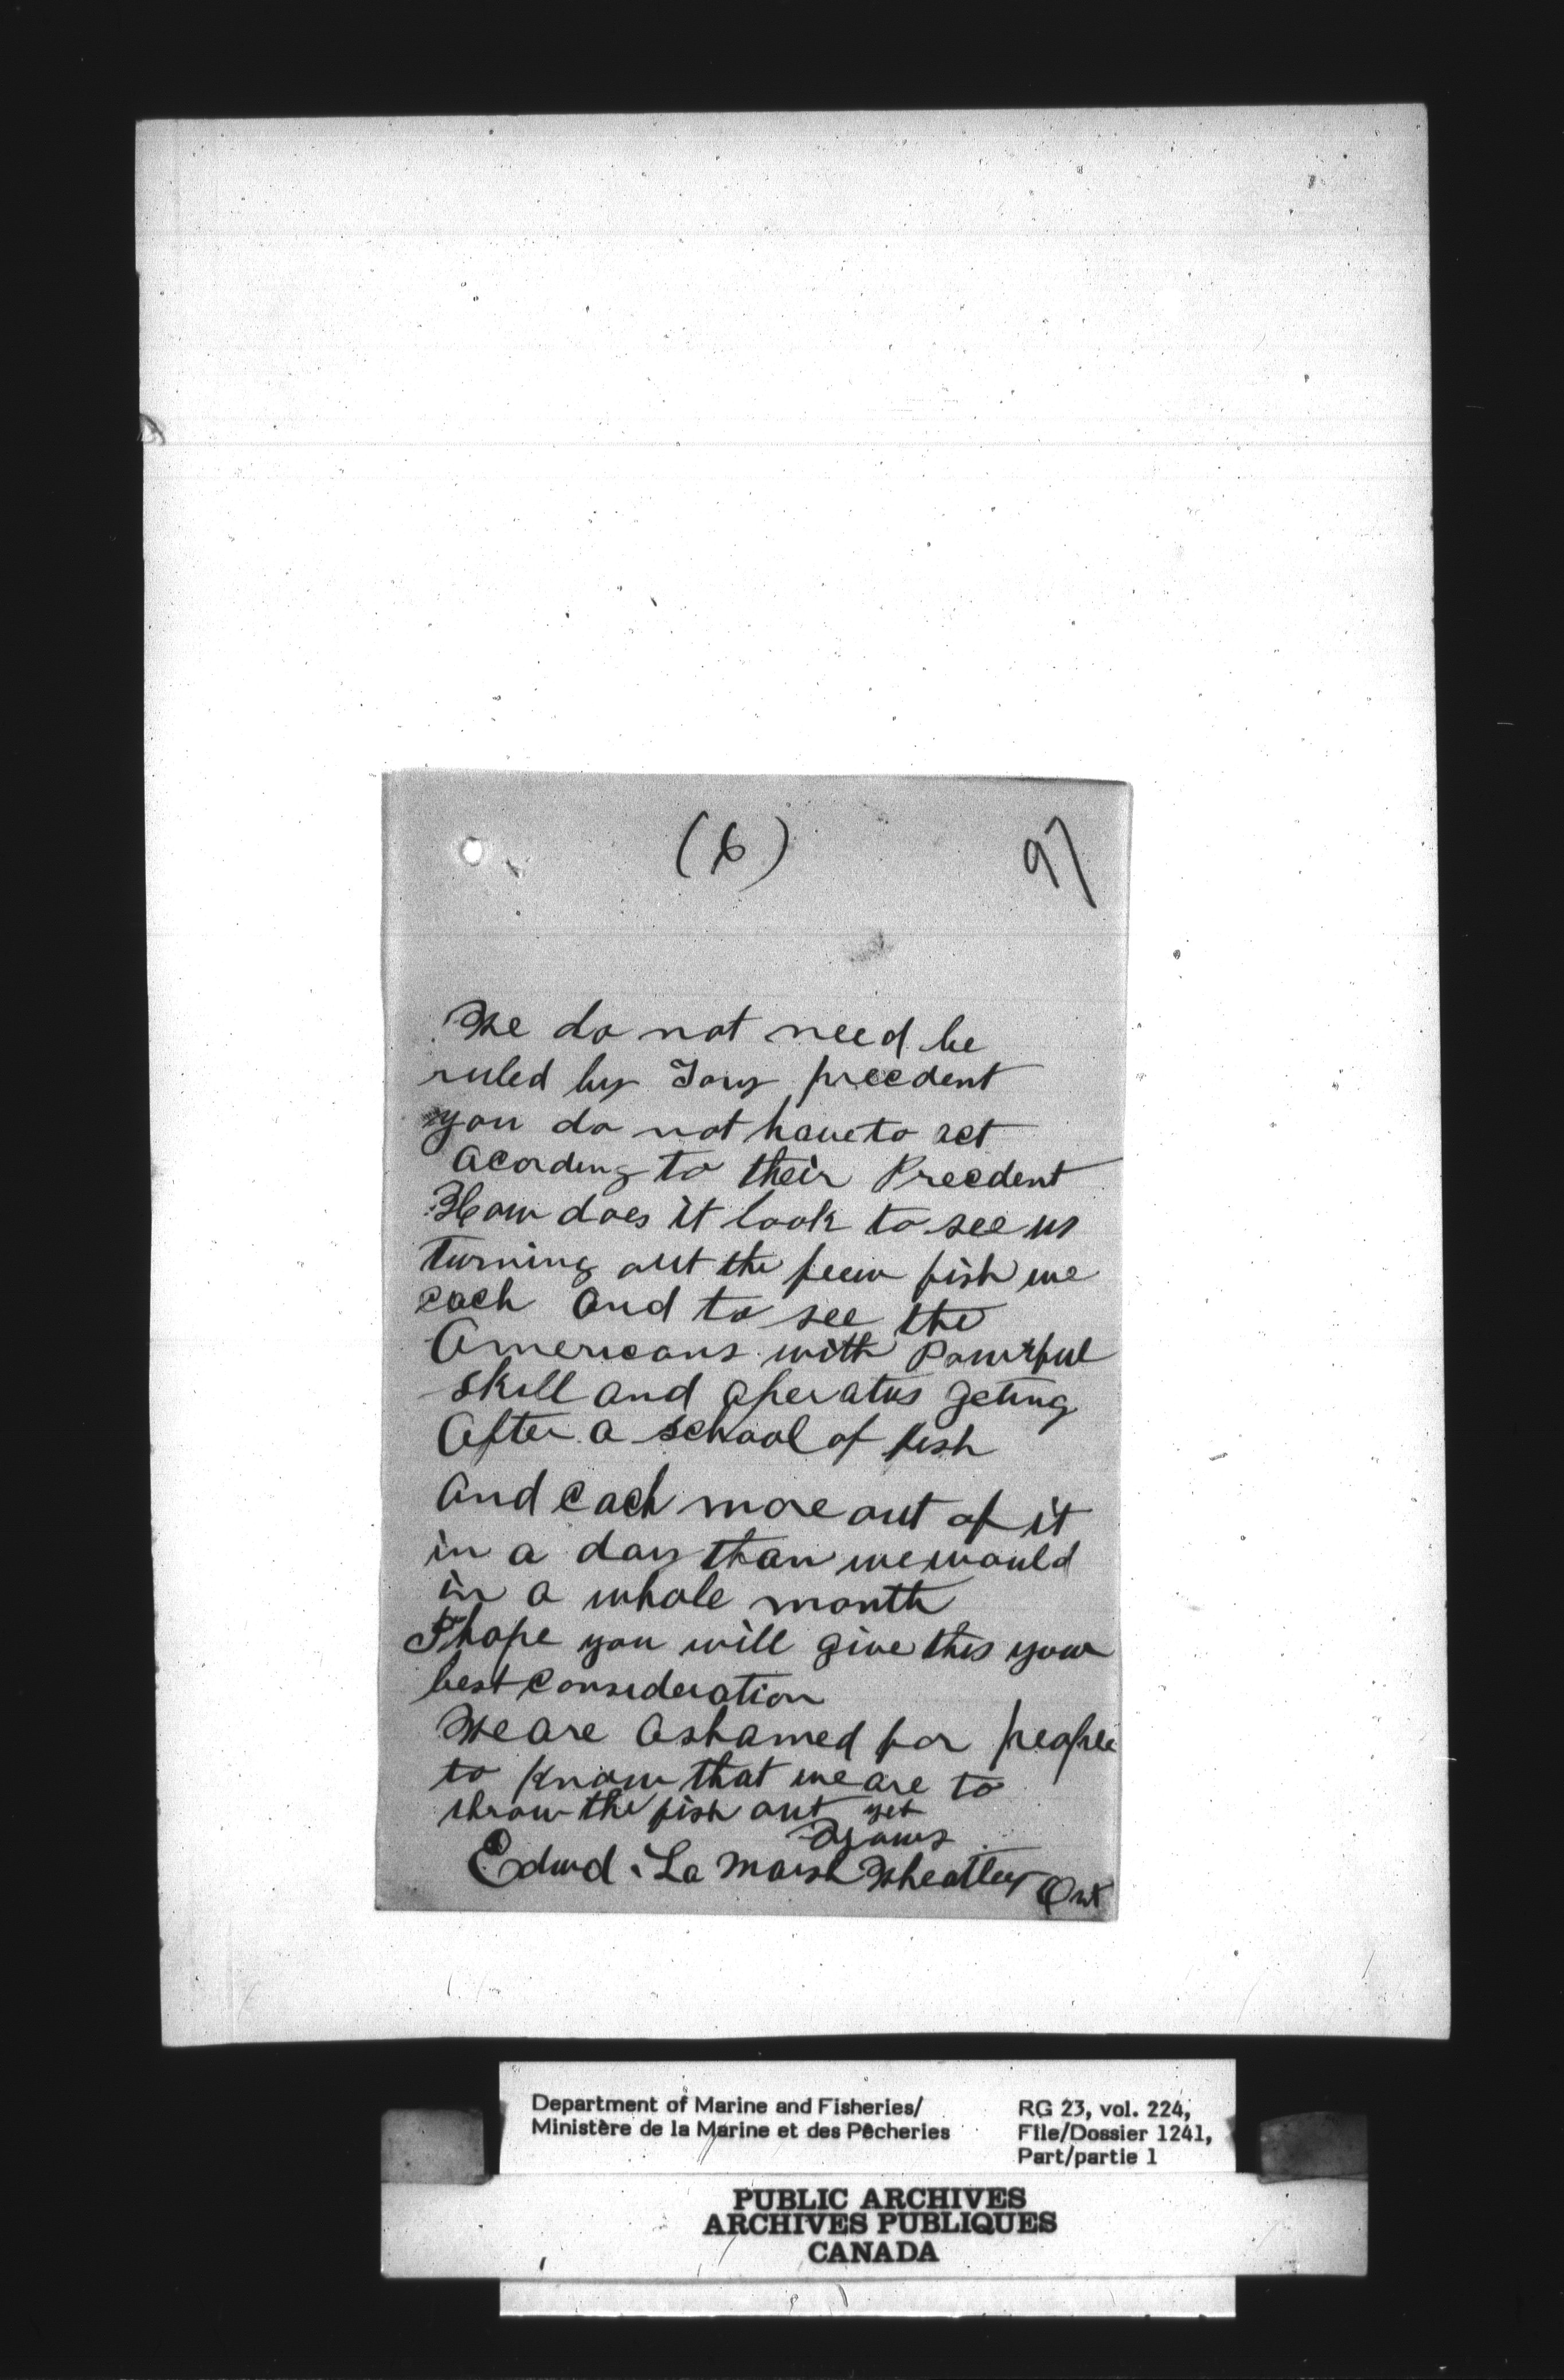 (6)
97
We do not need be
ruled by Tory precdent
you do not have to act
acording to their Precdent
How does it look to see us
turning out the feew fish we
cach and to see the
Americans with Powrful
skill and aperatus geting
After a school of fish
and cach more out of it
in a day than we would
in a whole month
I hope you will give this your
best consideration
We are ashamed for people
to know that we are to
throw the fish out yet
Yours
Edwd. La Marsh Wheatley Ont
Department of Marine and Fisheries/
Ministère de la Marine et des Pêcheries
RG 23, vol. 224,
File/Dossier 1241,
Part/partie 1
PUBLIC ARCHIVES
ARCHIVES PUBLIQUES
CANADA